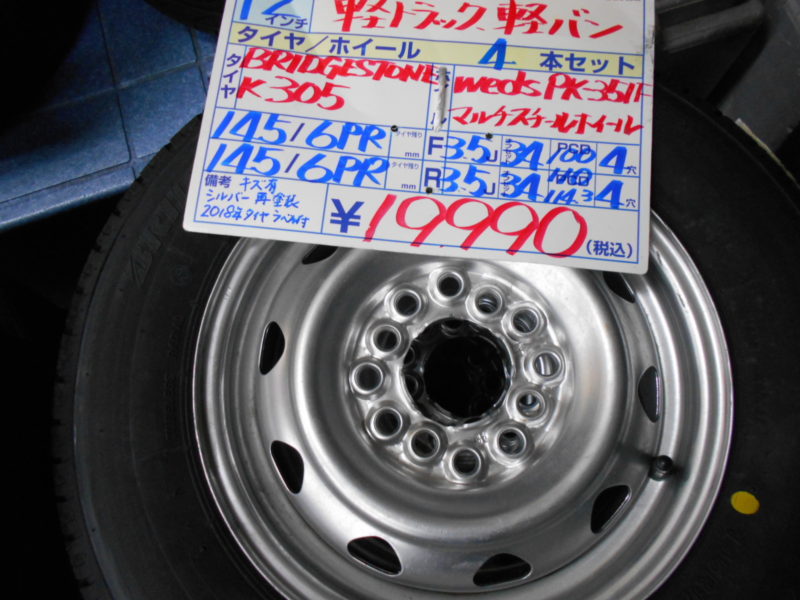 12インチ 軽トラック、軽バン
タイヤ/ホイール 4 本セット
タイヤ BRIDGESTONE
K305
weds PK-351F
マルチスケールホイール
145/6PR タイヤ残り mm F 3.5J 34 100 4穴
145/6PR タイヤ残り mm R 3.5J 34 114.3 4穴
備考 キズ有
シルバー再塗装
2018年タイヤ ラベル付
¥19,990 (税込)